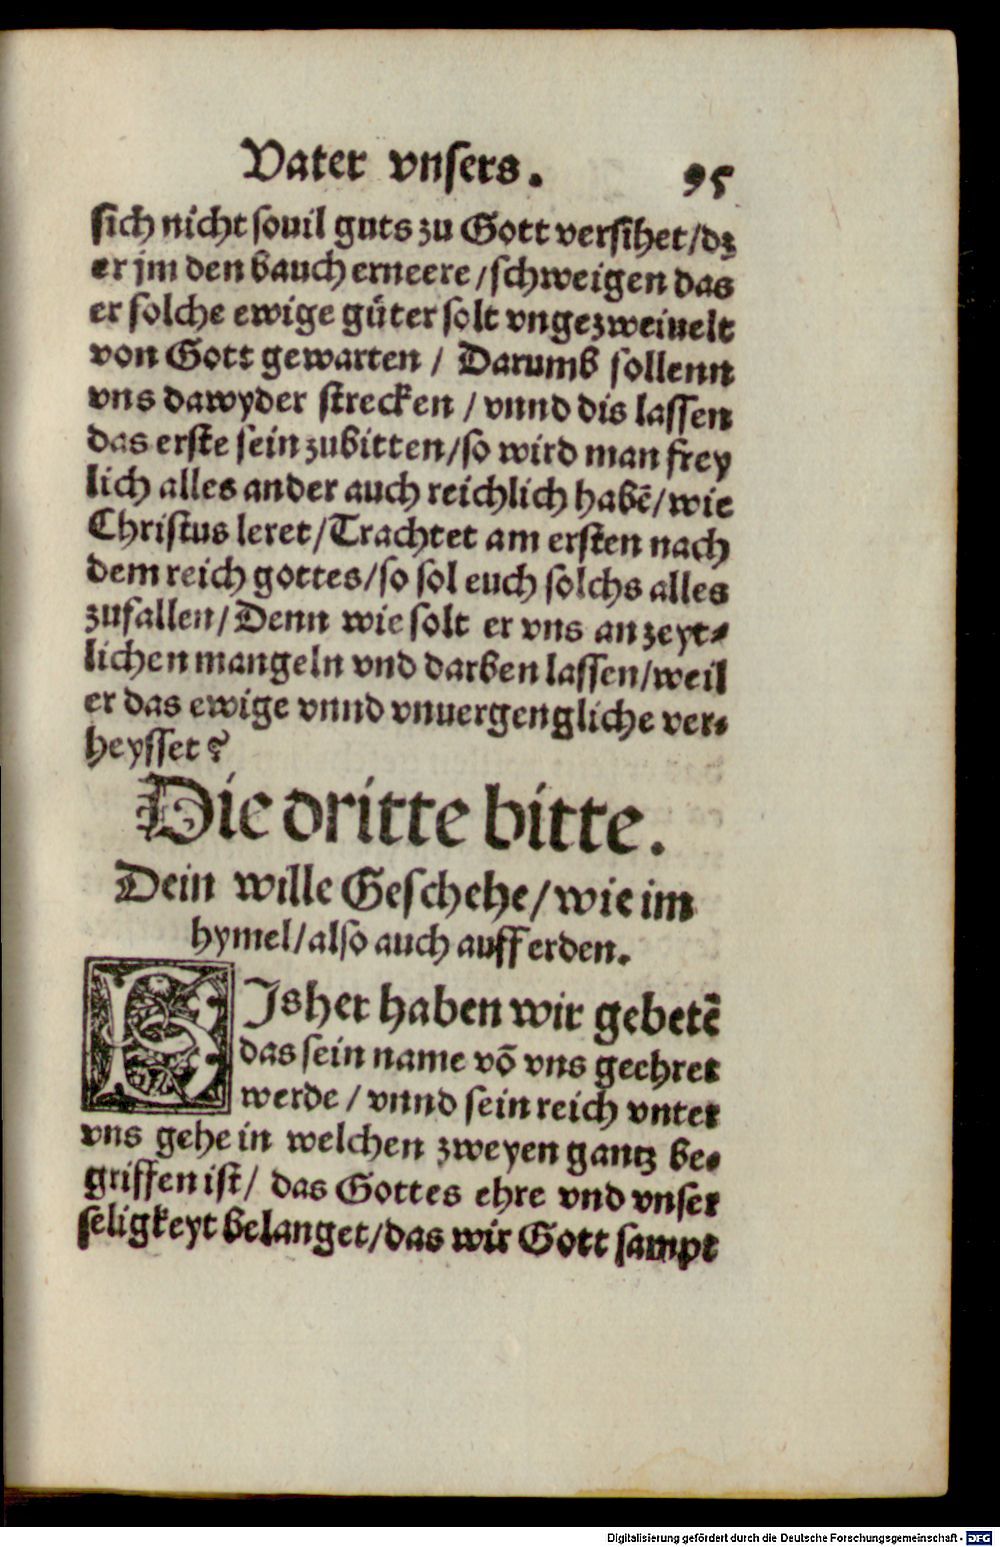 Vater vnsers. 95
sich nicht souil guts zu Gott versihet/dz
er jm den bauch erneere/schweigen das
er solche ewige güter solt vngezweiuelt
von Gott gewarten / Darumb sollenn
vns dawyder strecken / vnnd dis lassen
das erste sein zubitten/so wird man frey
lich alles ander auch reichlich habē/wie
Christus leret/Trachtet am ersten nach
dem reich gottes/so sol euch solchs alles
zufallen/Denn wie solt er vns an zeyt⸗
lichen mangeln vnd darben lassen/weil
er das ewige vnnd vnuergengliche ver⸗
heysset?
Die dritte bitte.
Dein wille Geschehe/wie im
hymel/also auch auff erden.
BIsher haben wir gebetē
das sein name vō vns geehret
werde / vnnd sein reich vnter
vns gehe in welchen zweyen gantz be⸗
griffen ist/ das Gottes ehre vnd vnser
seligkeyt belanget/das wir Gott sampt
Digitalisierung gefördert durch die Deutsche Forschungsgemeinschaft - DFG